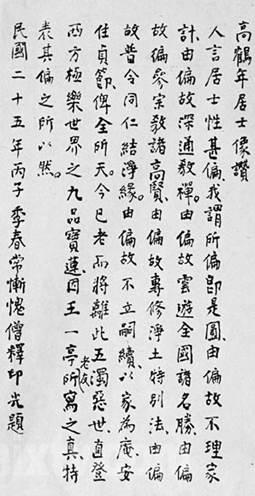 高鶴年居士像讚
人言居士性甚偏。我謂所偏即是圓。由偏故不理家
計。由偏故深通教禪。由偏故雲遊全國諸名勝。由偏
故徧參宗教諸高賢。由偏故專修淨土特別法。由偏
故普令同仁結淨緣。由偏故不立嗣續。以家為庵。安
住貞節。俾全所天。今已老而將離此五濁惡世。直登
西方極樂世界之九品寶蓮。因王一亭老友所寫之真。特
表其偏之所以然。
民國二十五年丙子季春常慚愧僧釋印光題